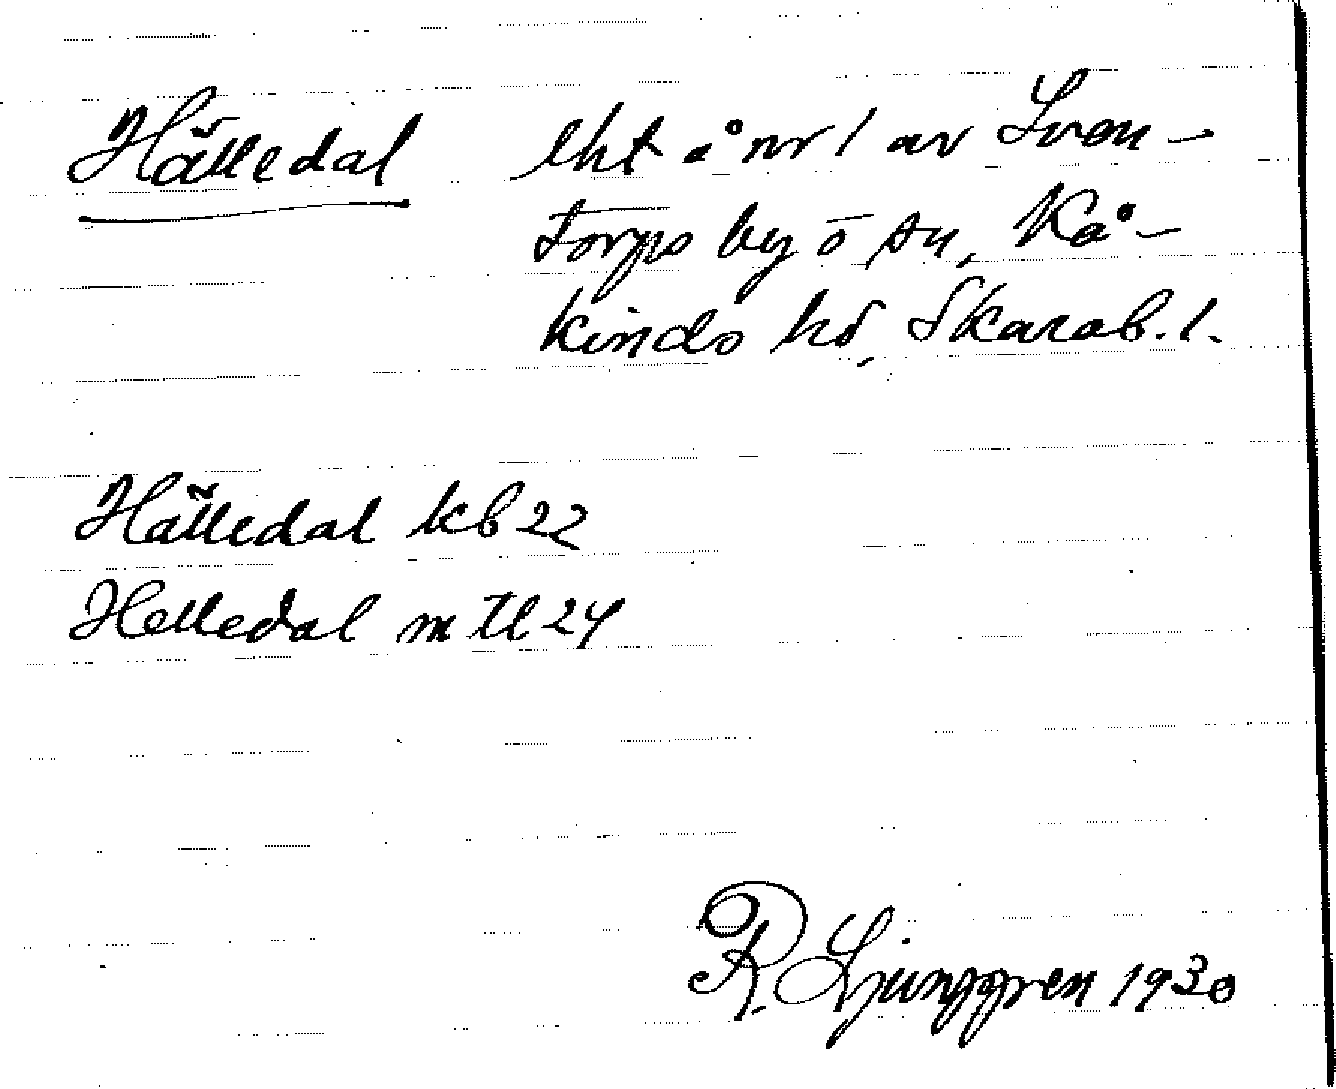 Hälledal lht å nr 1 av Sven-
torps by o sn, Kå-
kinds hd, Skarab. l.
Hälledal kb 22
Helledal mtl 24
R. Ljunggren 1930